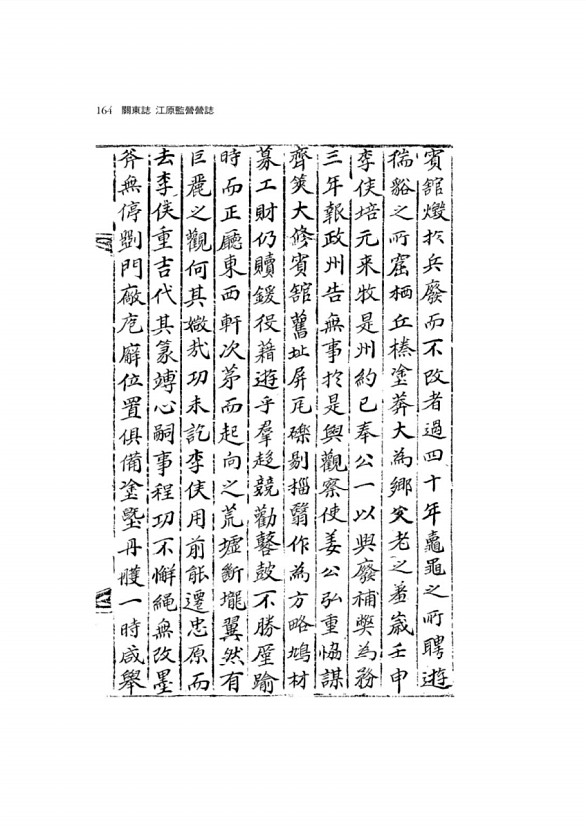 164 關東誌 江原監營營誌
賓舘燬於兵廢而不改者過四十年鼃黽之所聘遊
猯貉之所窟栖丘榛塗莽大為鄉父老之羞歲壬申
李侯培元来牧是州約己奉公一以興廢補弊為務
三年報政州告無事於是與觀察使姜公弘重恊謀
齊筴大修賓舘舊址屏瓦礫剔椔翳作為方略鳩材
募工財仍贖鍰役藉遊手羣趍競勸鼛鼓不勝厪踰
時而正廳東西軒次苐而起向之荒墟斷壠翼然有
巨麗之觀何其媺哉功未訖李侯用前能遷忠原而
去李侯重吉代其篆竱心嗣事程功不懈繩無改墨
斧無停斵門廠庖廨位置俱備塗墍丹雘一時咸舉